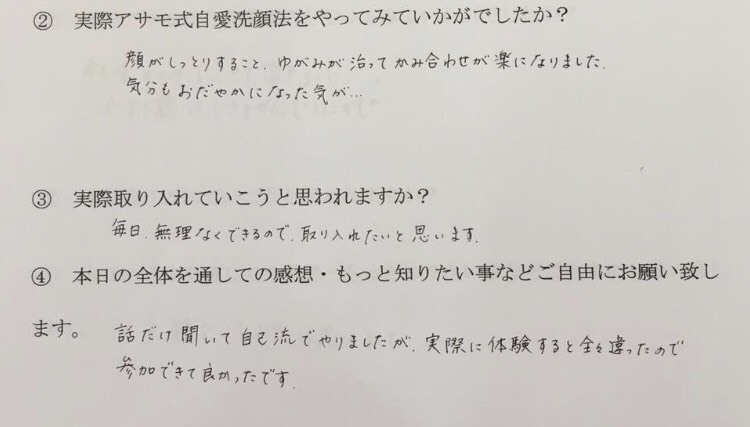 ② 実際アサモ式自愛洗顔法をやってみていかがでしたか？
顔がしっとりすること、ゆがみが治ってかみ合わせが楽になりました。
気分もおだやかになった気が…
③ 実際取り入れていこうと思われますか？
毎日、無理なくできるので、取り入れたいと思います。
④ 本日の全体を通しての感想・もっと知りたい事などご自由にお願い致し
ます。 話だけ聞いて自己流でやりましたが、実際に体験すると全々違ったので
参加できて良かったです。